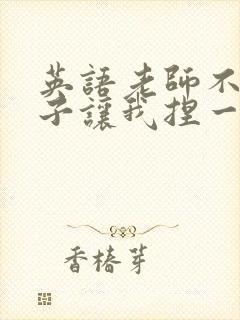 英語老師不
子讓我捏一
香椿芽